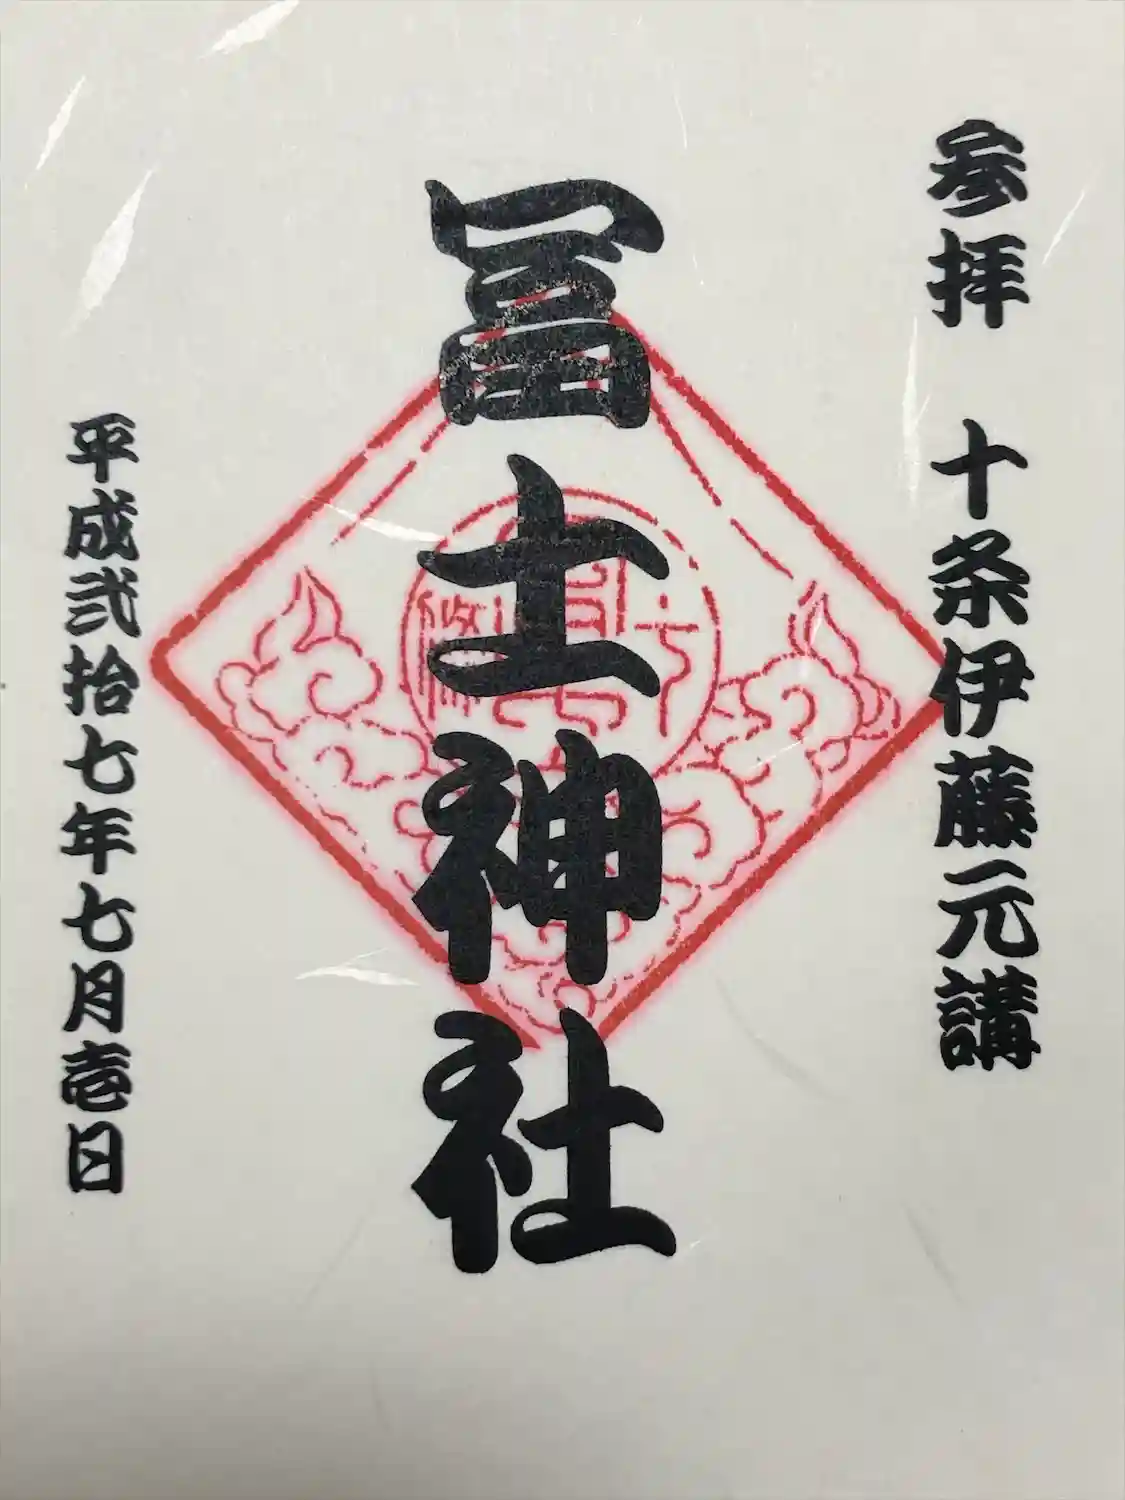 参拝　十条伊藤元講
冨士神社
平成弐拾七年七月壱日